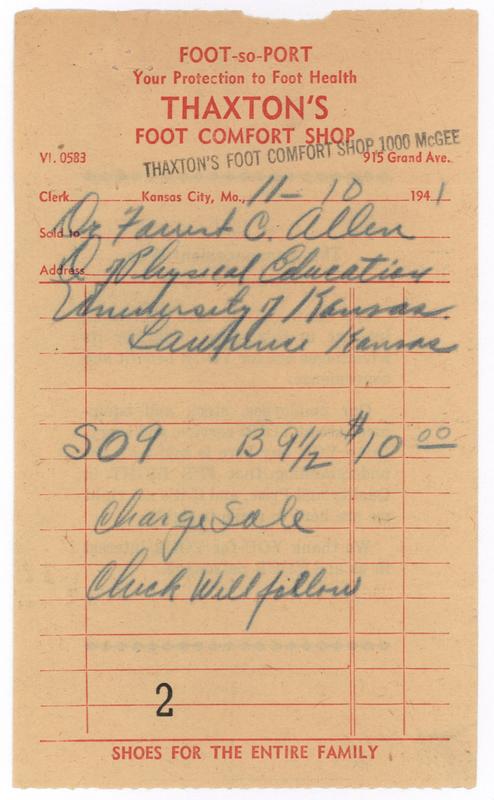 FOOT-so-PORT
Your Protection to Foot Health
THAXTON'S
FOOT COMFORT SHOP
THAXTON'S FOOT COMFORT SHOP 1000 McGEE
VI. 0583 915 Grand Ave.
Clerk Kansas City, Mo., 11-10 1941
Sold to Dr Forrest C. Allen
Address D of Physical Education
University of Kansas.
Lawrence Kansas
S09 B 9½ $10 00
Charge Sale
Check Will follow
2
SHOES FOR THE ENTIRE FAMILY